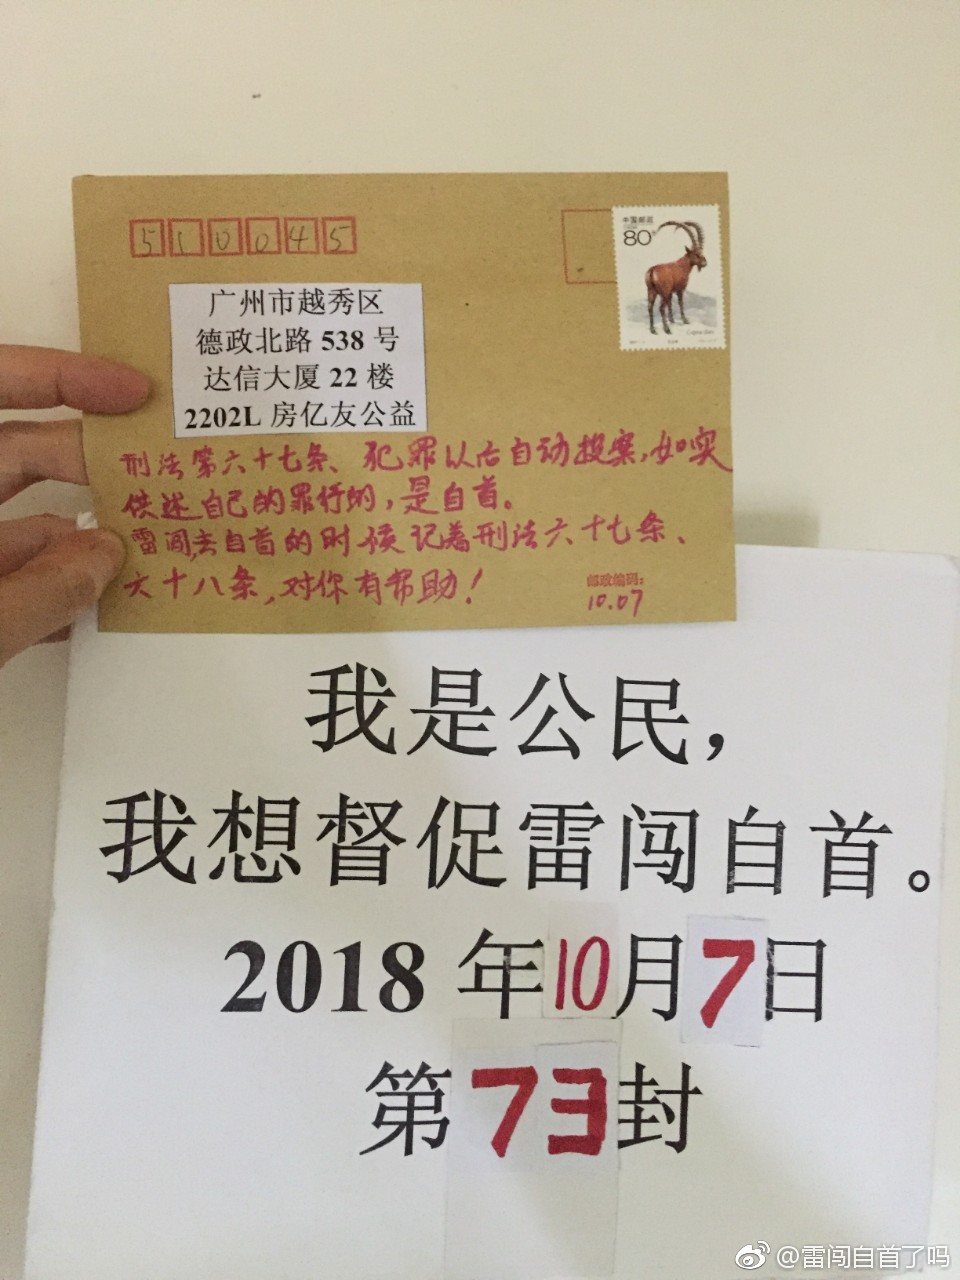 510045
中国邮政
80分
广州市越秀区
德政北路 538 号
达信大厦 22 楼
2202L 房亿友公益
刑法第六十七条、犯罪以后自动投案,如实
供述自己的罪行的,是自首。
雷闯去自首的时候记着刑法六十七条、
六十八条,对你有帮助!
邮政编码:
10.07
我是公民,
我想督促雷闯自首。
2018 年10月7日
第73封
@雷闯自首了吗